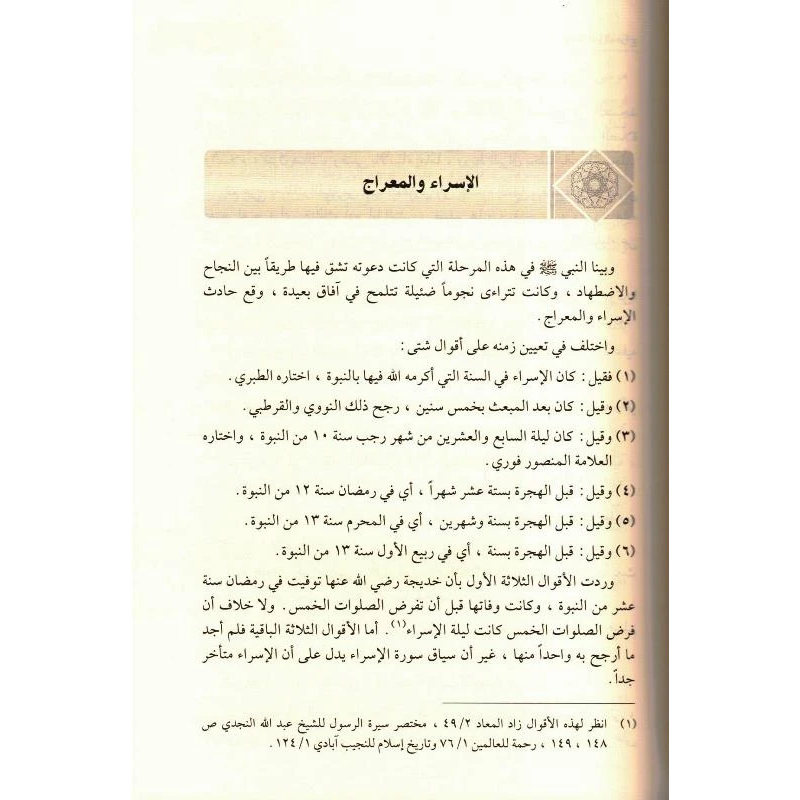 الإسراء والمعراج
وبينا النبي ﷺ في هذه المرحلة التي كانت دعوته تشق فيها طريقاً بين النجاح
والاضطهاد ، وكانت تتراءى نجوماً ضئيلة تتلمح في آفاق بعيدة ، وقع حادث
الإسراء والمعراج .
واختلف في تعيين زمنه على أقوال شتى :
(١) فقيل : كان الإسراء في السنة التي أكرمه الله فيها بالنبوة ، اختاره الطبري .
(٢) وقيل : كان بعد المبعث بخمس سنين ، رجح ذلك النووي والقرطبي .
(٣) وقيل : كان ليلة السابع والعشرين من شهر رجب سنة ١٠ من النبوة ، واختاره
العلامة المنصور فوري .
(٤) وقيل : قبل الهجرة بستة عشر شهراً ، أي في رمضان سنة ١٢ من النبوة .
(٥) وقيل : قبل الهجرة بسنة وشهرين ، أي في المحرم سنة ١٣ من النبوة .
(٦) وقيل : قبل الهجرة بسنة ، أي في ربيع الأول سنة ١٣ من النبوة .
وردت الأقوال الثلاثة الأول بأن خديجة رضي الله عنها توفيت في رمضان سنة
عشر من النبوة ، وكانت وفاتها قبل أن تفرض الصلوات الخمس . ولا خلاف أن
فرض الصلوات الخمس كانت ليلة الإسراء(١) . أما الأقوال الثلاثة الباقية فلم أجد
ما أرجح به واحداً منها ، غير أن سياق سورة الإسراء يدل على أن الإسراء متأخر
جداً .
(١) انظر لهذه الأقوال زاد المعاد ٤٩/٢ ، مختصر سيرة الرسول للشيخ عبد الله النجدي ص
١٤٨ ، ١٤٩ ، رحمة للعالمين ٧٦/١ وتاريخ إسلام للنجيب آبادي ١٢٤/١ .